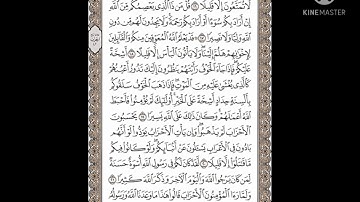 لَّا تُمَتَّعُونَ إِلَّا قَلِيلًا ١٦ قُلْ مَن ذَا الَّذِي يَعْصِمُكُم مِّنَ اللَّهِ
إِنْ أَرَادَ بِكُمْ سُوءًا أَوْ أَرَادَ بِكُمْ رَحْمَةً وَلَا يَجِدُونَ لَهُم مِّن دُونِ
اللَّهِ وَلِيًّا وَلَا نَصِيرًا ١٧ قَدْ يَعْلَمُ اللَّهُ الْمُعَوِّقِينَ مِنكُمْ وَالْقَائِلِينَ
لِإِخْوَانِهِمْ هَلُمَّ إِلَيْنَا وَلَا يَأْتُونَ الْبَأْسَ إِلَّا قَلِيلًا ١٨ أَشِحَّةً
عَلَيْكُمْ فَإِذَا جَاءَ الْخَوْفُ رَأَيْتَهُمْ يَنظُرُونَ إِلَيْكَ تَدُورُ أَعْيُنُهُمْ
كَالَّذِي يُغْشَى عَلَيْهِ مِنَ الْمَوْتِ فَإِذَا ذَهَبَ الْخَوْفُ سَلَقُوكُم
بِأَلْسِنَةٍ حِدَادٍ أَشِحَّةً عَلَى الْخَيْرِ أُولَئِكَ لَمْ يُؤْمِنُوا فَأَحْبَطَ
اللَّهُ أَعْمَالَهُمْ وَكَانَ ذَلِكَ عَلَى اللَّهِ يَسِيرًا ١٩ يَحْسَبُونَ
الْأَحْزَابَ لَمْ يَذْهَبُوا وَإِن يَأْتِ الْأَحْزَابُ يَوَدُّوا لَوْ أَنَّهُم
بَادُونَ فِي الْأَعْرَابِ يَسْأَلُونَ عَنْ أَنبَائِكُمْ وَلَوْ كَانُوا فِيكُم
مَّا قَاتَلُوا إِلَّا قَلِيلًا ٢٠ لَّقَدْ كَانَ لَكُمْ فِي رَسُولِ اللَّهِ أُسْوَةٌ حَسَنَةٌ
لِّمَن كَانَ يَرْجُو اللَّهَ وَالْيَوْمَ الْآخِرَ وَذَكَرَ اللَّهَ كَثِيرًا ٢١
وَلَمَّا رَأَى الْمُؤْمِنُونَ الْأَحْزَابَ قَالُوا هَذَا مَا وَعَدَنَا اللَّهُ وَرَسُولُهُ
KINEMASTER